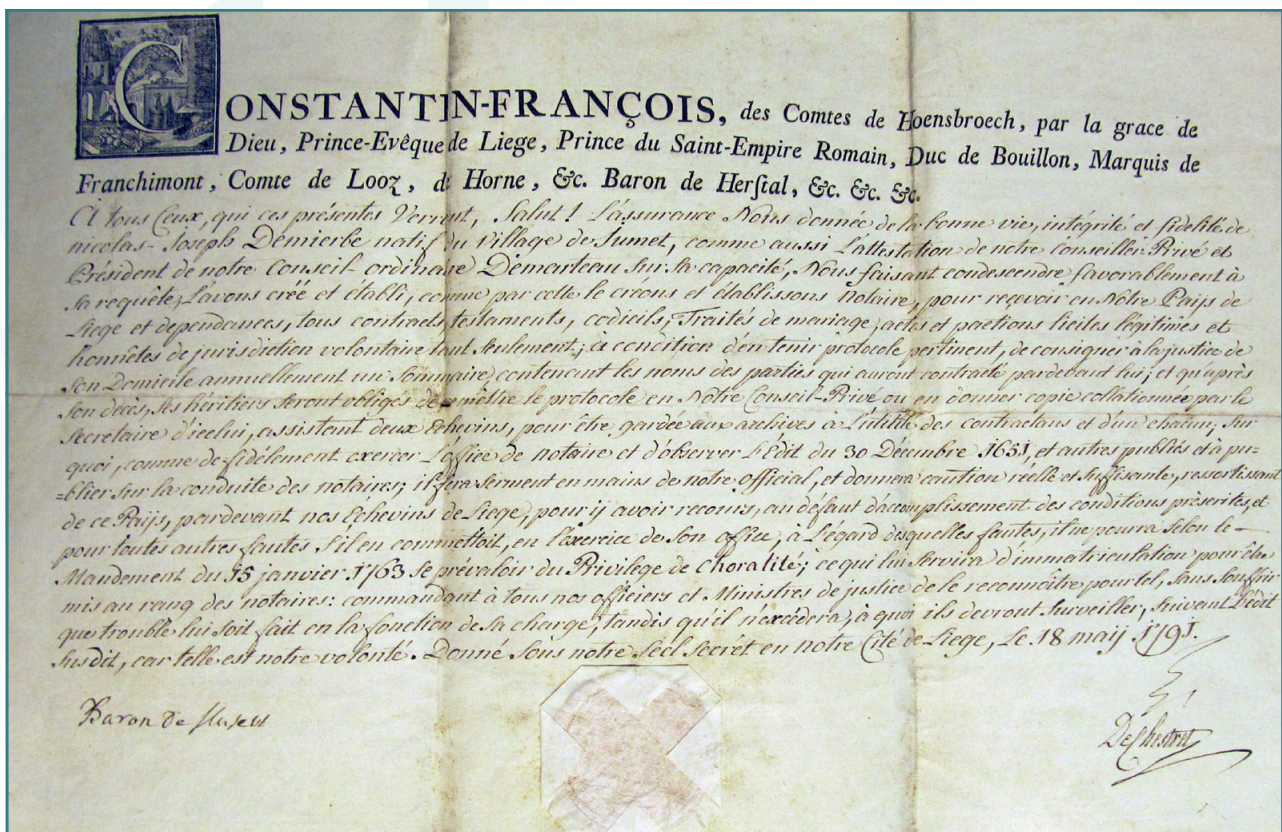 CONSTANTIN-FRANÇOIS, des Comtes de Hoensbroech, par la grace de
Dieu, Prince-Evêque de Liege, Prince du Saint-Empire Romain, Duc de Bouillon, Marquis de
Franchimont, Comte de Looz, de Horne, &c. Baron de Herſtal, &c. &c. &c.
A tous Ceux, qui ces présentes Verront, Salut! L'assurance Nous donnée de la bonne vie, intégrité et fidélité de
nicolas-Joseph Demierbe natif du Village de Jumet, comme aussi L'attestation de notre Conseiller Privé et
Président de notre Conseil-ordinaire Demarteau sur sa capacité, Nous faisant condescendre favorablement à
sa requête, L'avons créé et établi, comme par cette le créons et établissons Notaire, pour recevoir en Notre Païs de
Liege et dependances, tous contracts, testaments, codicils, Traités de mariage, actes et pactions licites légitimes et
honnêtes de jurisdiction volontaire tant seulement; à condition d'en tenir protocole pertinent, de consigner à la justice de
son Domicile annuellement un Sommaire, contenant les noms des parties qui auront contracté pardevant lui; et qu'après
son decès, ses héritiers seront obligés de remettre le protocole en Notre Conseil-Privé ou en donner copie collationnée par le
secretaire d'icelui, assistant deux Echevins, pour être gardée aux archives à L'utilité des contractans et d'un chacun; sur
quoi, comme de fidélement exercer L'office de notaire et d'observer L'Edit du 30 Décembre 1651, et autres publiés et à pu=
=blier sur la conduite des notaires; il fera serment en mains de notre official, et donnera caution réelle et suffisante, ressortissant
de ce Païs, pardevant nos Echevins de Liege, pour ij avoir recours, au défaut d'accomplissement des conditions prèscrites, et
pour toutes autres fautes s'il en commettoit, en L'exercice de son office, à L'égard desquelles fautes, il ne pourra selon le
Mandement du 15 janvier 1763 se prévaloir du Privilege de Choralité; ce qui lui servira d'immatriculation pour être
mis au rang des notaires: commandant à tous nos officiers et Ministres de justice de le reconnoitre pour tel, sans souffrir
que trouble lui soit fait en la fonction de sa charge, tandis qu'il n'excédera, à quoi ils devront surveiller, suivant L'édit
susdit, car telle est notre volonté. Donné sous notre Scel Secrèt en notre Cité de Liege, Le 18 maij 1791.
Baron de
De Chestret